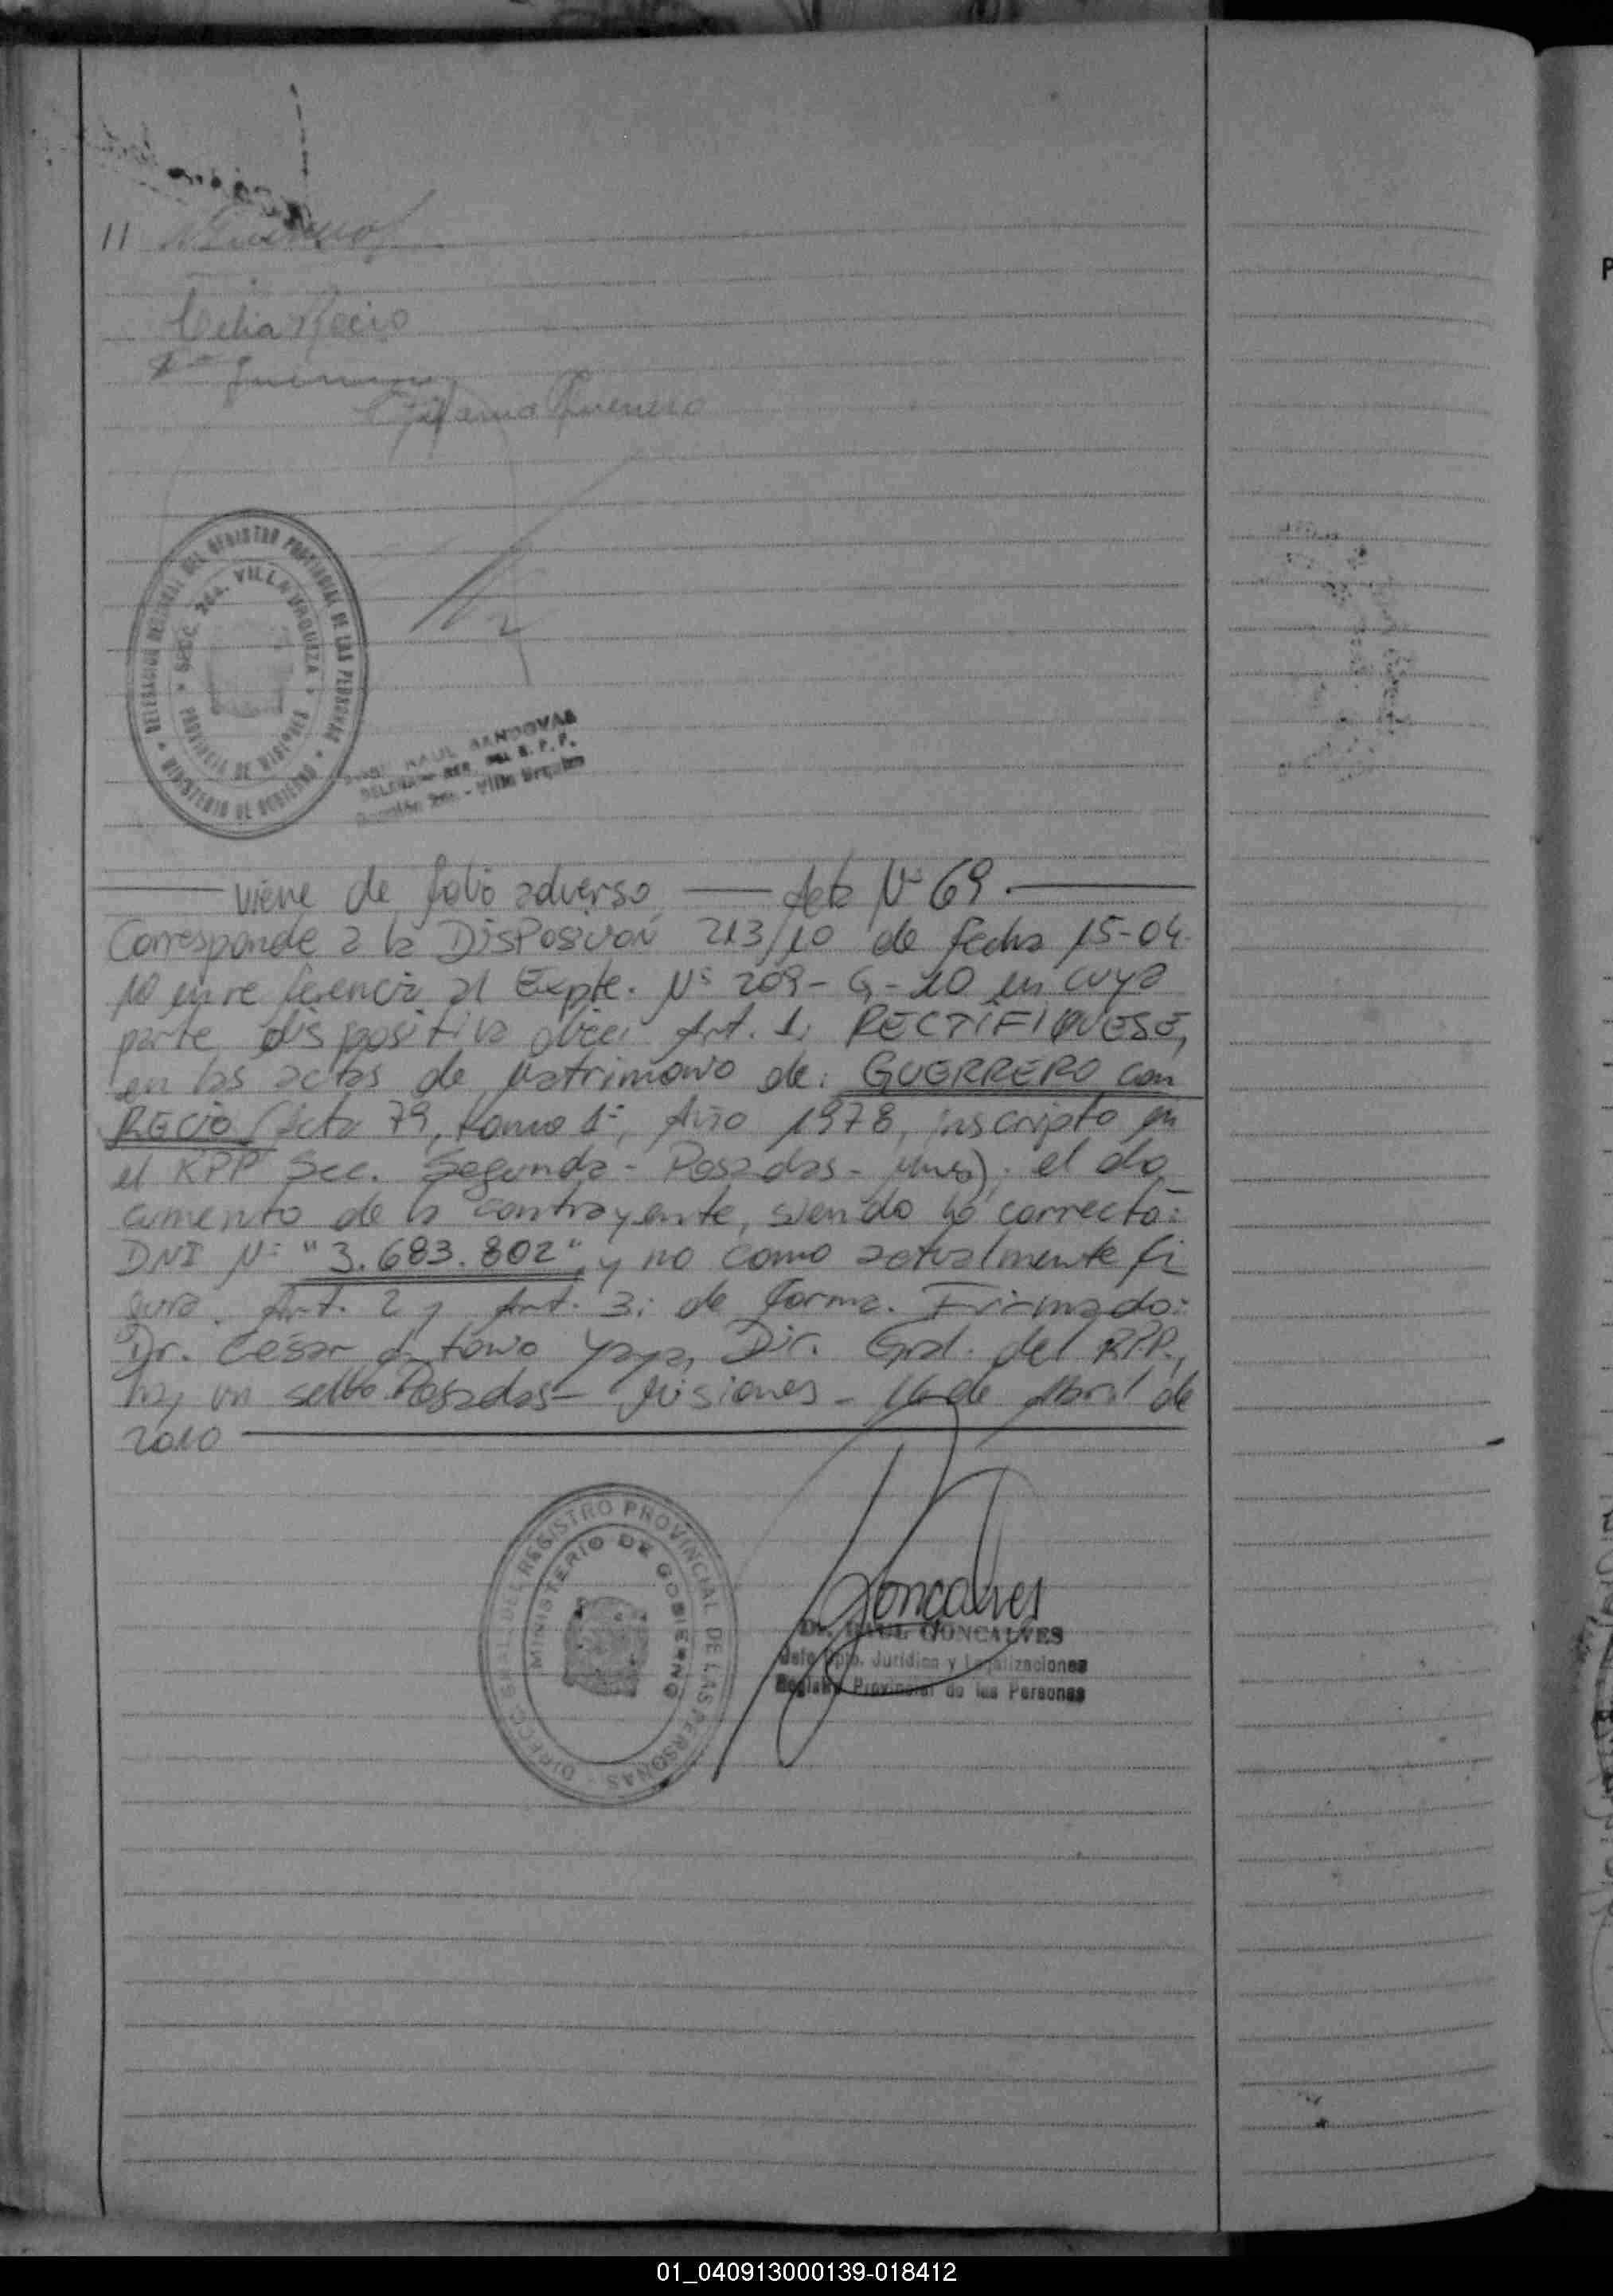 11 N Guerrero
Celia Recio
Guerrero
viene de folio adverso — Acta Nº 69. —
Corresponde a la Disposición 213/10 de fecha 15-04-
10 en referencia al Expte. Nº 209-G-10 en cuya
parte dispositiva dice: Art. 1: RECTIFIQUESE,
en las actas de Matrimonio de: GUERRERO con
RECIO (Acta 79, tomo 1º, Año 1978, inscripto en
el RPP Sec. Segunda - Posadas - Mnes). el do
cumento de la contrayente, siendo lo correcto:
DNI Nº "3.683.802", y no como actualmente fi
gura. Art. 2 y Art. 3: de forma. Firmado:
Dr. César Antonio Yaya, Dir. Gral. del RPP,
hay un sello Posadas - Misiones - 16 de Abril de
2010
DELEGACION REGIONAL DEL REGISTRO PROVINCIAL DE LAS PERSONAS
MINISTERIO DE GOBIERNO
SECC. 2da. VILLA URQUIZA
PROVINCIA DE MISIONES
RAUL SANDOVAL
Villa Urquiza
DIRECC. GRAL. DEL REGISTRO PROVINCIAL DE LAS PERSONAS
MINISTERIO DE GOBIERNO
Goncalves
GONCALVES
Jefe Dpto. Jurídico y Legalizaciones
Registro Provincial de las Personas
01_040913000139-018412